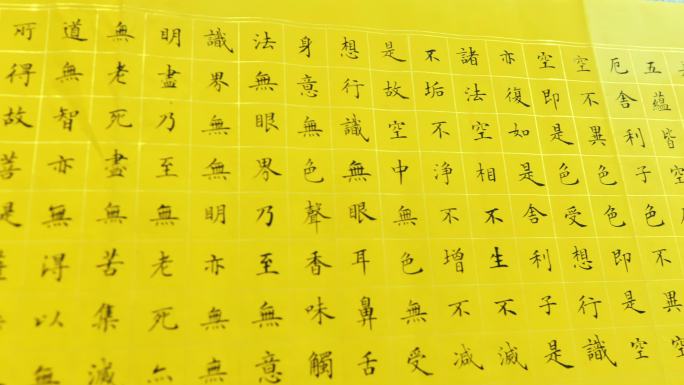 五蘊皆空
厄舍利子色不異空
空不異色色即是空
空即是色受想行識
亦復如是舍利子是
諸法空相不生不滅
不垢不淨不增不减
是故空中無色無受
想行識無眼耳鼻舌
身意無色聲香味觸
法無眼界乃至無意
識界無無明亦無無
明盡乃至無老死
無老死盡無苦集滅
道無智亦無得以無
所得故菩